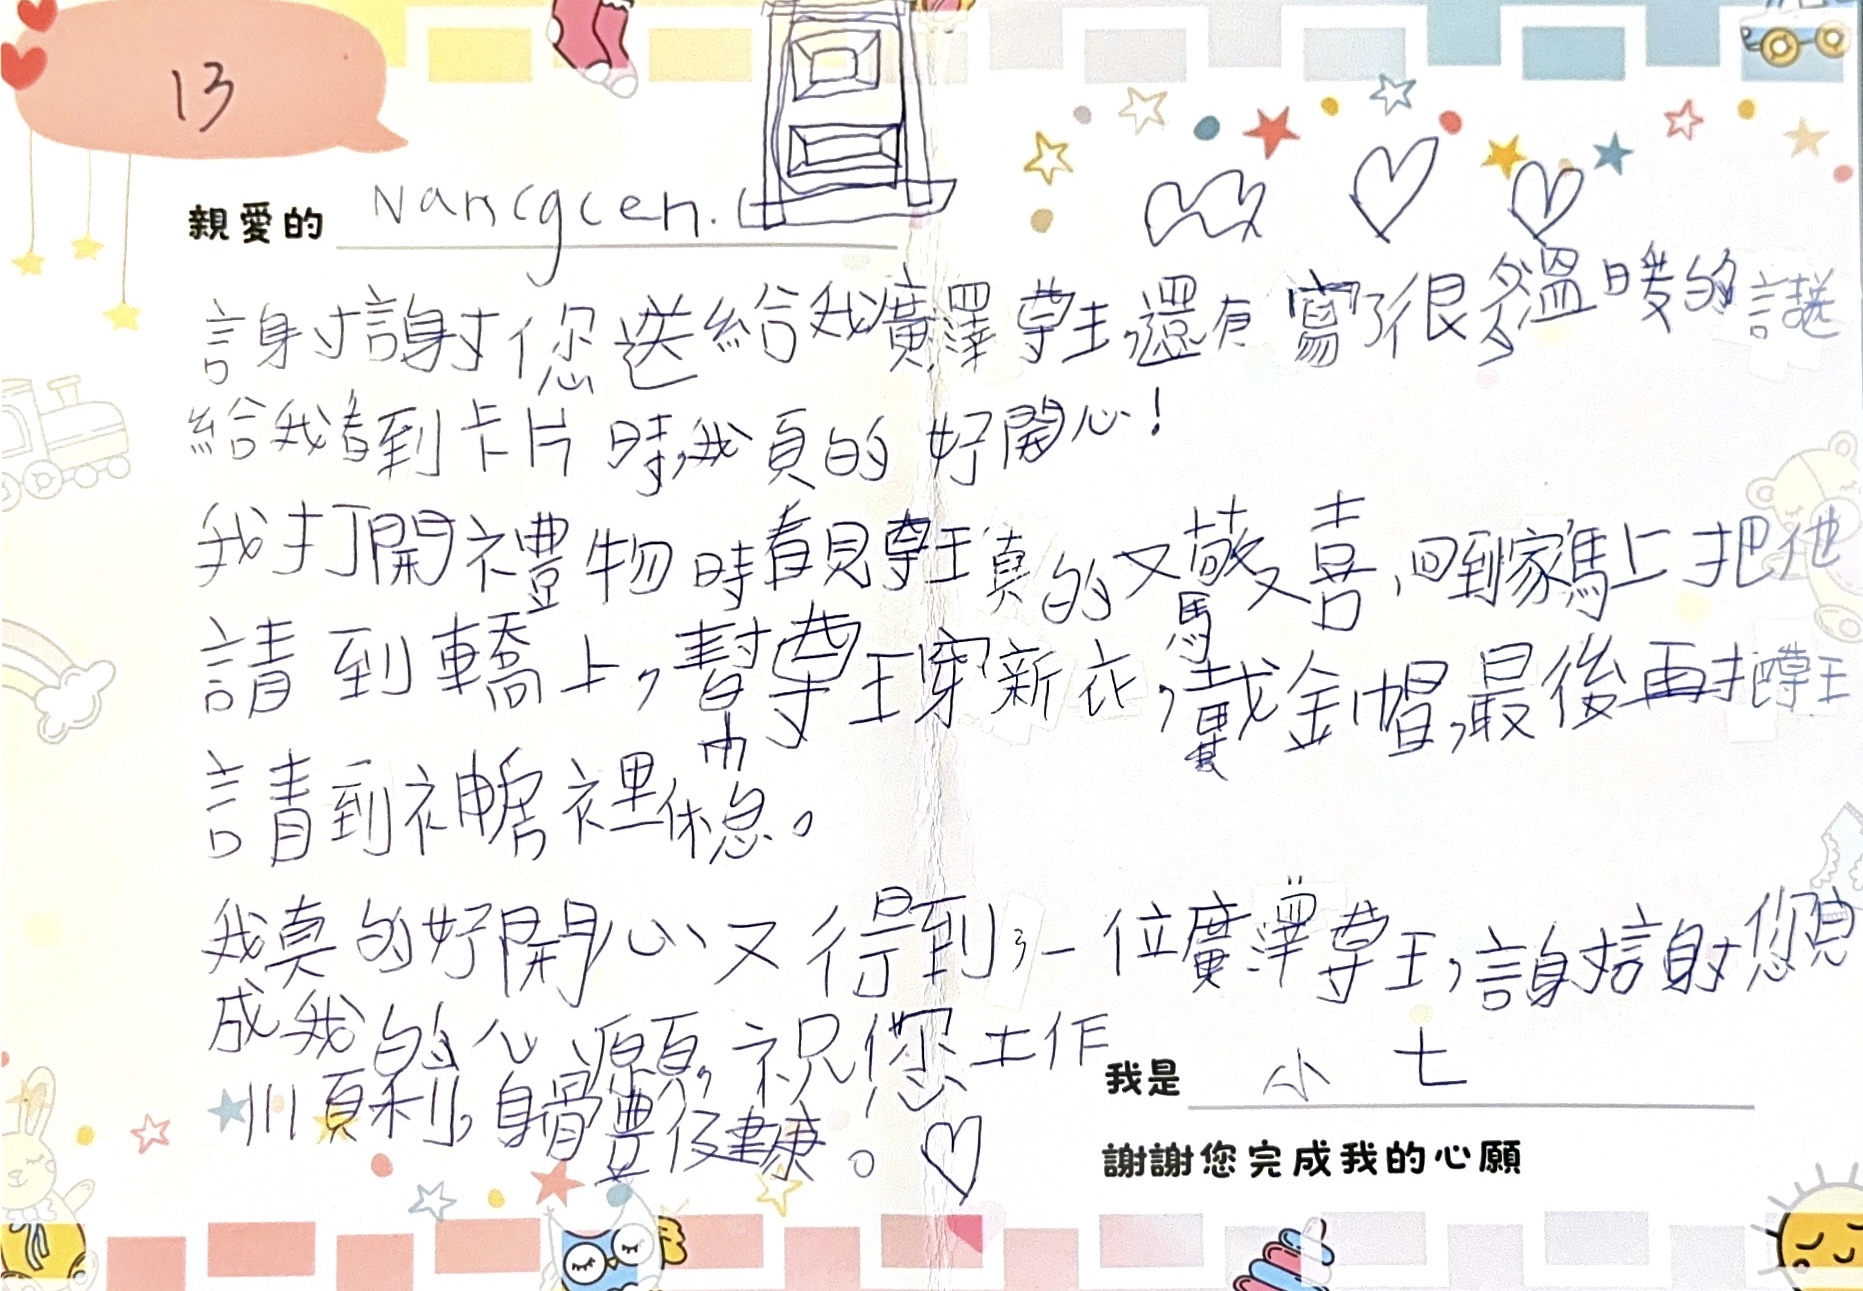 13
親愛的 Nancgcen.
謝謝您送給我廣澤尊王,還有寫了很多溫暖的話
給我看到卡片時,我真的好開心!
我打開禮物時看見尊王真的又驚又喜,回到家馬上把他
請到轎上,幫尊王穿新衣,戴金帽,最後再把尊王
請到神龕裡休息。
我真的好開心又得到了一位廣澤尊王,謝謝您完
成我的心願,祝您工作
順利,身體健康。
我是 小七
謝謝您完成我的心願